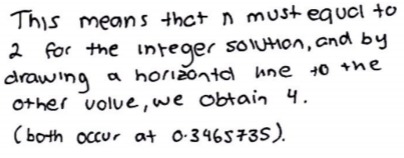 This means that n must equal to
2 for the integer solution, and by
drawing a horizontal line to the
other value, we obtain 4.
(both occur at 0.3465735).